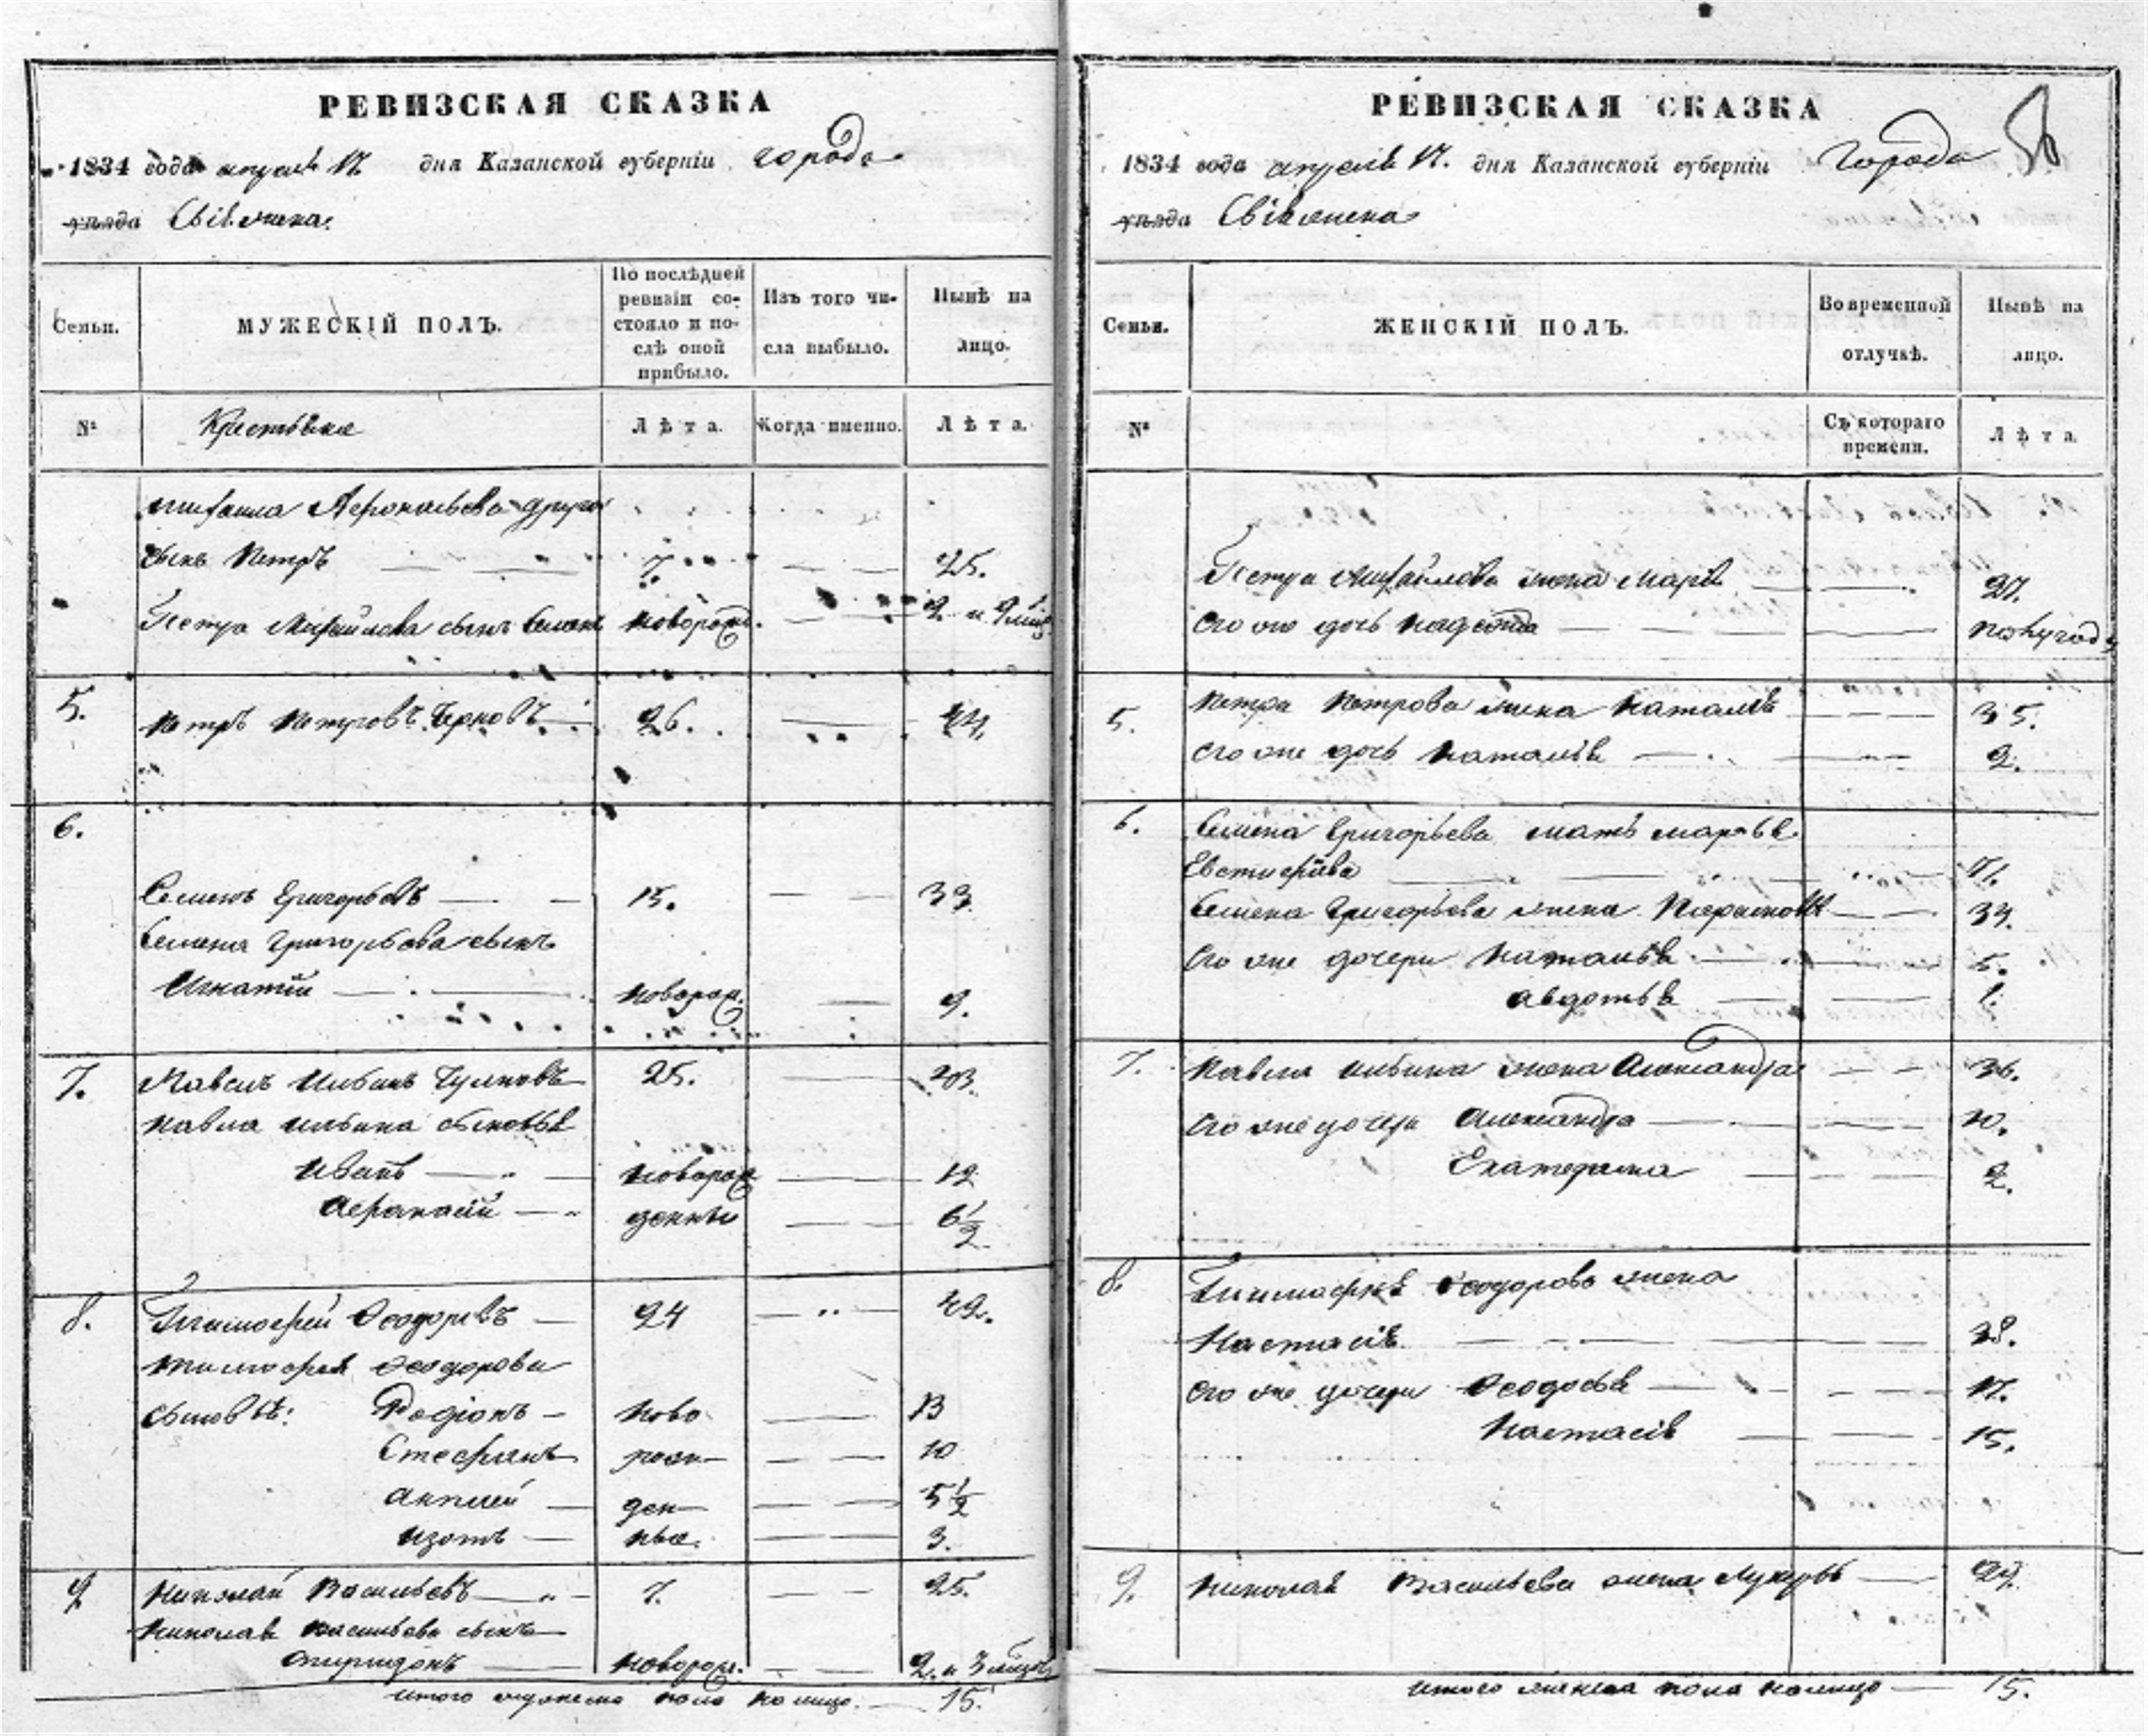 РЕВИЗСКАЯ СКАЗКА
1834 года апреля 17 дня Казанской губерніи города
уѣзда Свіяжска.
Семьи.
МУЖЕСКІЙ ПОЛЪ.
По послѣдней ревизіи состояло и послѣ оной прибыло.
Изъ того числа выбыло.
Нынѣ на лицо.
№
Лѣта.
Когда именно.
Лѣта.
Михаила Афонасьева другой
сынъ Петръ 7. 25.
Петра Михайлова сынъ Семенъ новорожд. 2 и 9 мѣс
5. Петръ Петровъ 26. 44.
6.
Семенъ Григорьевъ 15. 33
Семена Григорьева сынъ
Игнатій новорож. 9.
7. Павелъ Ильинъ 25. 43.
Павла Ильина сыновья
Иванъ новорож 12
Афанасій денны 6 1/2
8. Тимофей Ѳеодоровъ 24 42.
Тимофея Ѳеодорова
сыновья: Родіонъ ново 13
Стефанъ рож 10
ден 5 1/2
Изотъ ные. 3.
9 Николай Васильевъ 7. 25.
Николая Васильева сынъ
Спиридонъ новорож. 2. и 3 мѣсяц
Итого мужеска пола на лицо. 15.
РЕВИЗСКАЯ СКАЗКА
1834 года апреля 17. дня Казанской губерніи города
уѣзда Свіяжска
Семьи.
ЖЕНСКІЙ ПОЛЪ.
Во временной отлучкѣ.
Нынѣ на лицо.
№
Съ котораго времени.
Лѣта.
Петра Михайлова жена Марья 27.
Его же дочь полугоду
5. Петра Петрова жена Наталья 35.
Его же дочь Наталья 2.
6. Семена Григорьева мать Марья
Семена Григорьева жена Парасковья 34.
Его же дочери Наталья 5.
Авдотья 1.
7. Павла Ильина жена Александра 36.
Его же дочери Александра 10.
Екатерина 2.
8. Тимофея Ѳеодорова жена
Настасія 38.
Его же дочери Ѳеодосья 17.
Настасія 15.
9. Николая Васильева жена 27.
Итого женска пола налицо 15.